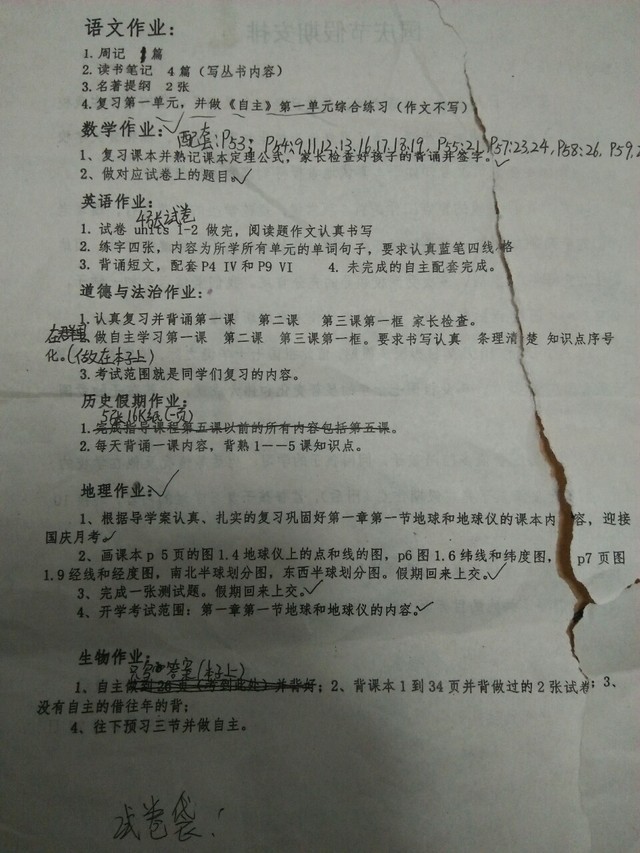 语文作业：
1. 周记 1篇
2. 读书笔记 4篇（写丛书内容）
3. 名著提纲 2张
4. 复习第一单元，并做《自主》第一单元综合练习（作文不写）
数学作业：✓
配套：P53； P54：9,11,12，13，16,17,18,19， P55：21， P57：23,24， P58：26， P59,2
1、复习课本并熟记课本定理公式，家长检查好孩子的背诵并签字。✓
2、做对应试卷上的题目。✓
英语作业：
4张试卷
1. 试卷 units 1-2 做完，阅读题作文认真书写
2. 练字四张，内容为所学所有单元的单词句子，要求认真蓝笔四线 格
3. 背诵短文，配套P4 IV和P9 VI 4. 未完成的自主配套完成。
道德与法治作业：
1. 认真复习并背诵第一课 第二课 第三课第一框 家长检查。
做自主学习第一课 第二课 第三课第一框。要求书写认真 条理清 楚 知识点序号
化。（做在本子上）
3. 考试范围就是同学们复习的内容。
历史假期作业：
5张16K纸（一页）
1. 完成指导课程第五课以前的所有内容包括第五课。
2. 每天背诵一课内容，背熟1——5课知识点。
地理作业：✓
1、根据导学案认真、扎实的复习巩固好第一章第一节地球和地球仪的课本内 容，迎接
国庆月考✓
2、画课本p 5页的图1.4地球仪上的点和线的图，p6图1.6纬线和纬度图， p7页图
1.9经线和经度图，南北半球划分图，东西半球划分图。假期回来上交。✓
3、完成一张测试题。假期回来上交。✓
4、开学考试范围：第一章第一节地球和地球仪的内容。✓
生物作业：
只写答案（本子上）
1、自主 并背好；2、背课本1到34页并背做过的2张试卷；3、
没有自主的借往年的背；
4、往下预习三节并做自主。
试卷袋！